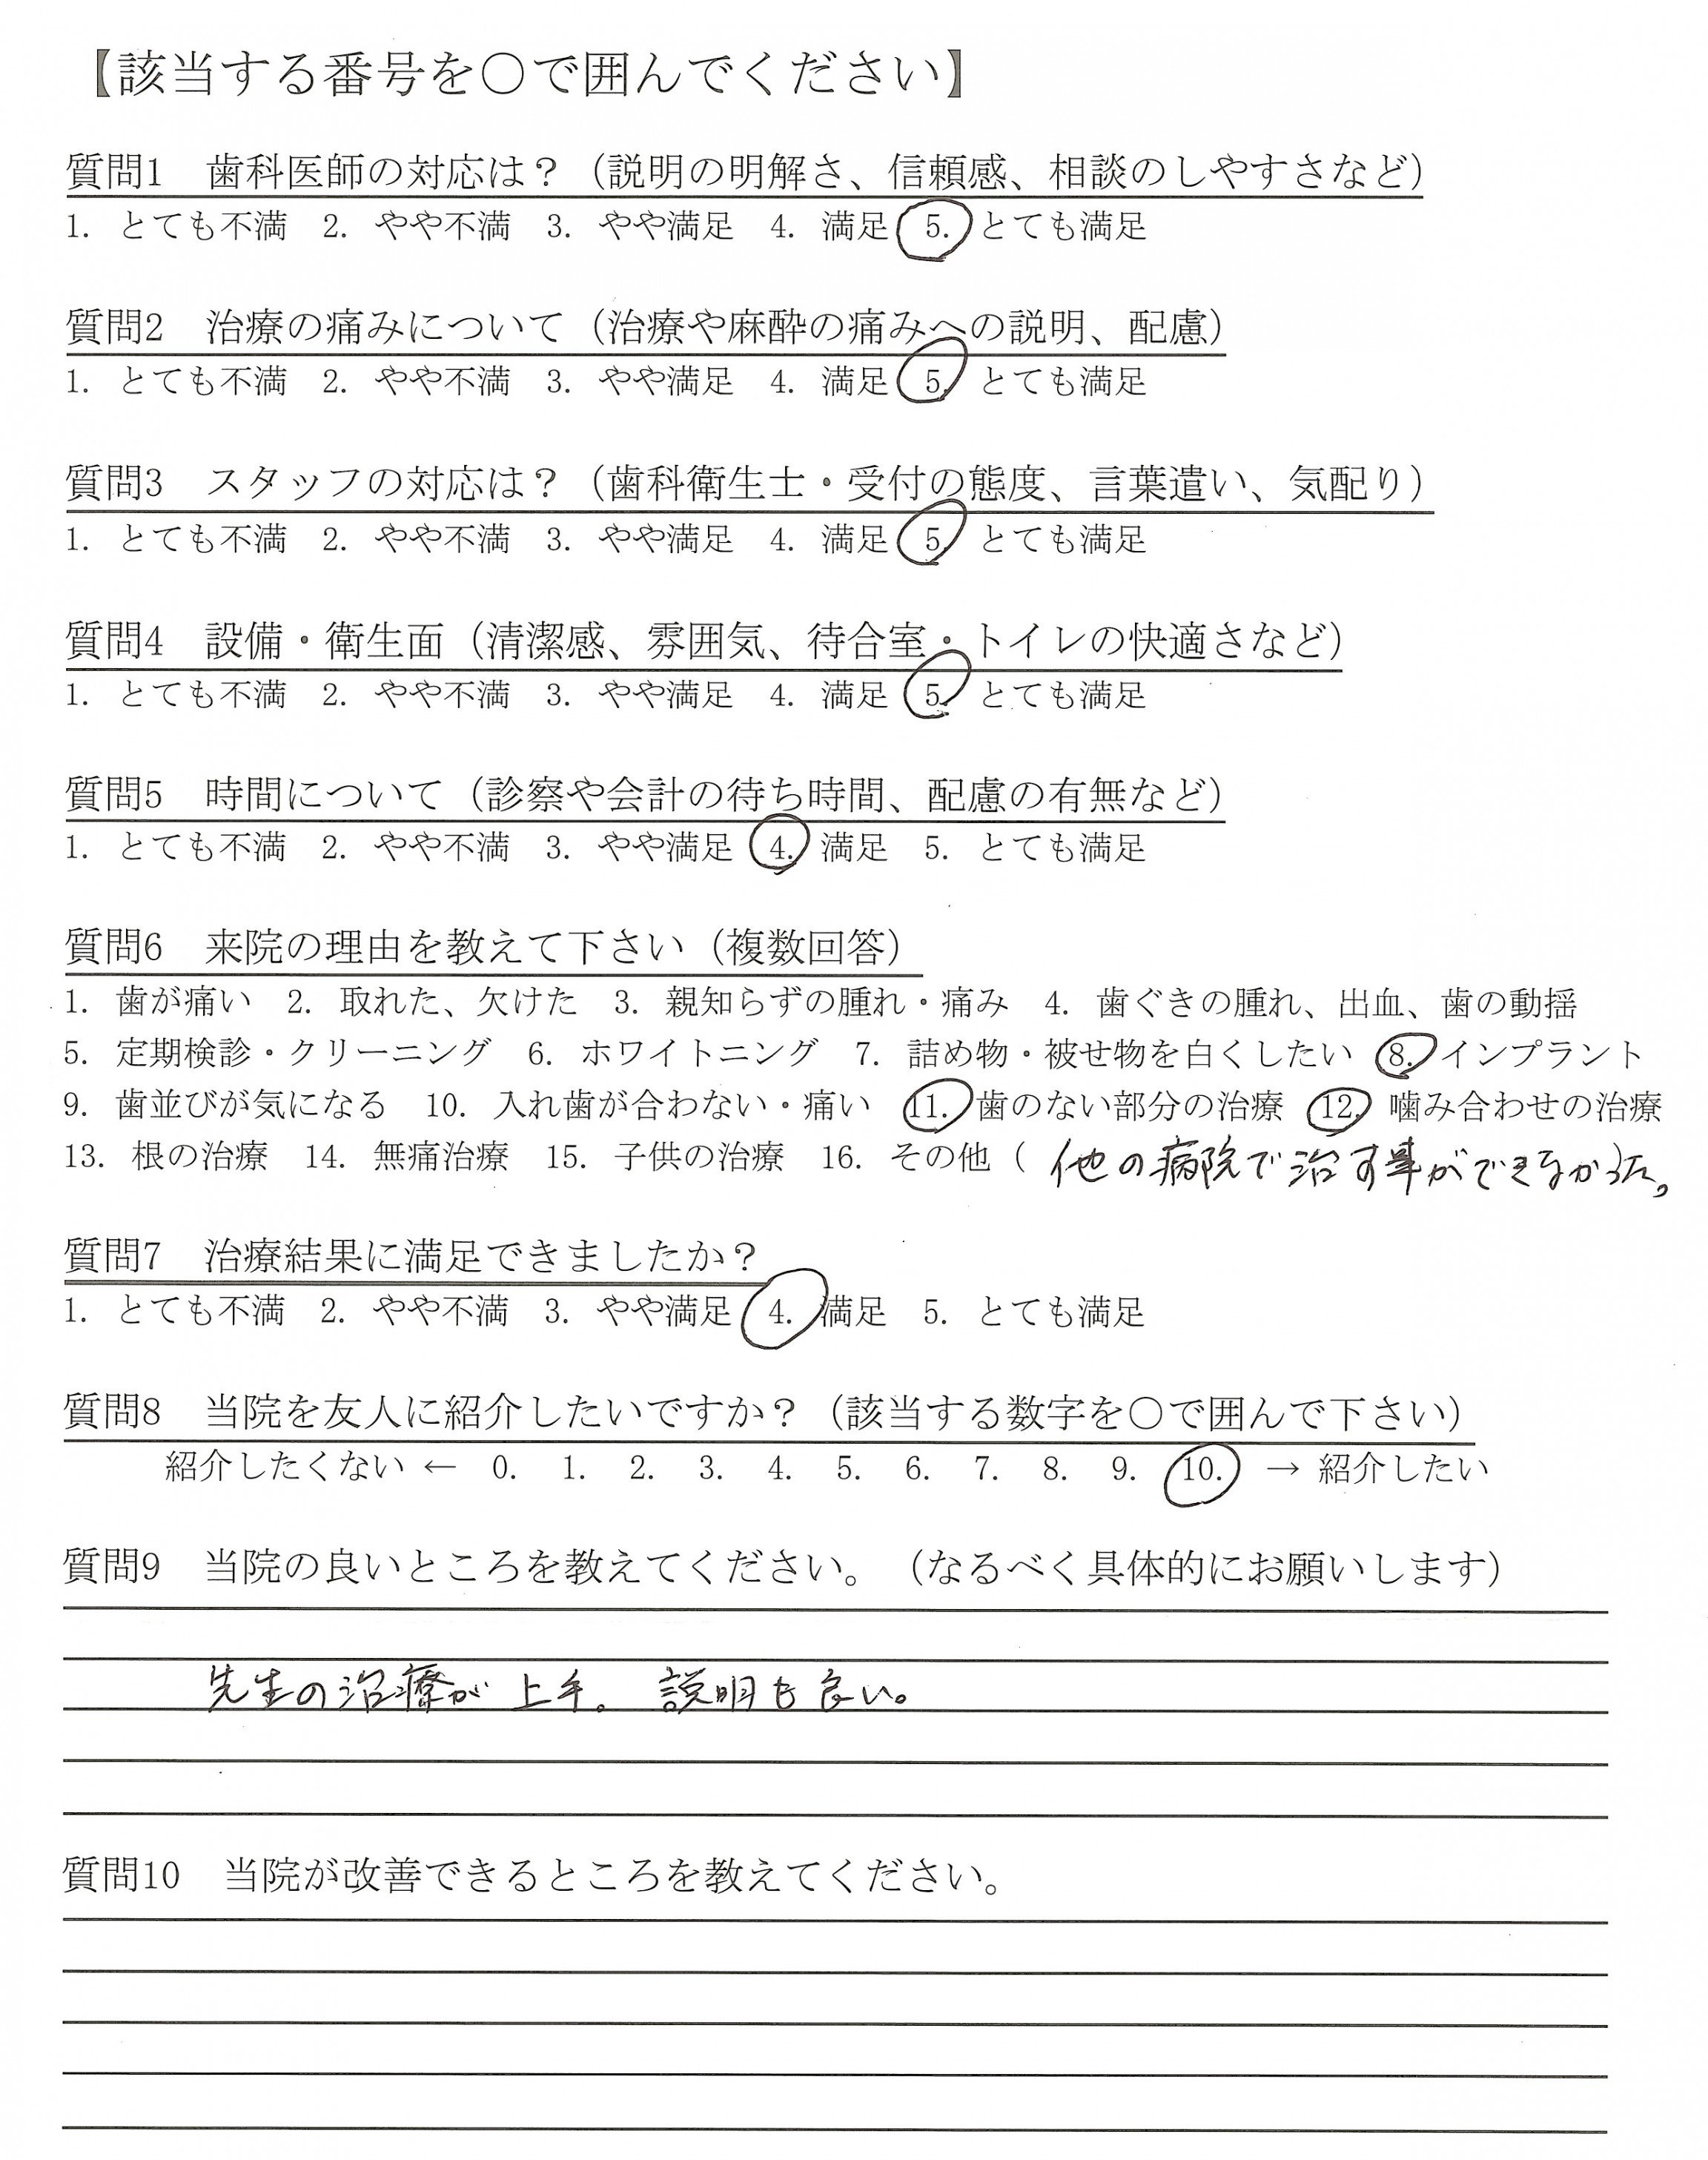 【該当する番号を〇で囲んでください】
質問1　歯科医師の対応は？（説明の明解さ、信頼感、相談のしやすさなど）
1. とても不満　2. やや不満　3. やや満足　4. 満足　5. とても満足
質問2　治療の痛みについて（治療や麻酔の痛みへの説明、配慮）
1. とても不満　2. やや不満　3. やや満足　4. 満足　5. とても満足
質問3　スタッフの対応は？（歯科衛生士・受付の態度、言葉遣い、気配り）
1. とても不満　2. やや不満　3. やや満足　4. 満足　5. とても満足
質問4　設備・衛生面（清潔感、雰囲気、待合室・トイレの快適さなど）
1. とても不満　2. やや不満　3. やや満足　4. 満足　5. とても満足
質問5　時間について（診察や会計の待ち時間、配慮の有無など）
1. とても不満　2. やや不満　3. やや満足　4. 満足　5. とても満足
質問6　来院の理由を教えて下さい（複数回答）
1. 歯が痛い　2. 取れた、欠けた　3. 親知らずの腫れ・痛み　4. 歯ぐきの腫れ、出血、歯の動揺
5. 定期検診・クリーニング　6. ホワイトニング　7. 詰め物・被せ物を白くしたい　8. インプラント
9. 歯並びが気になる　10. 入れ歯が合わない・痛い　11. 歯のない部分の治療　12. 噛み合わせの治療
13. 根の治療　14. 無痛治療　15. 子供の治療　16. その他（ 他の病院で治す事ができなかった。
質問7　治療結果に満足できましたか？
1. とても不満　2. やや不満　3. やや満足　4. 満足　5. とても満足
質問8　当院を友人に紹介したいですか？（該当する数字を〇で囲んで下さい）
紹介したくない ← 0. 1. 2. 3. 4. 5. 6. 7. 8. 9. 10. → 紹介したい
質問9　当院の良いところを教えてください。（なるべく具体的にお願いします）
先生の治療が上手。説明も良い。
質問10　当院が改善できるところを教えてください。